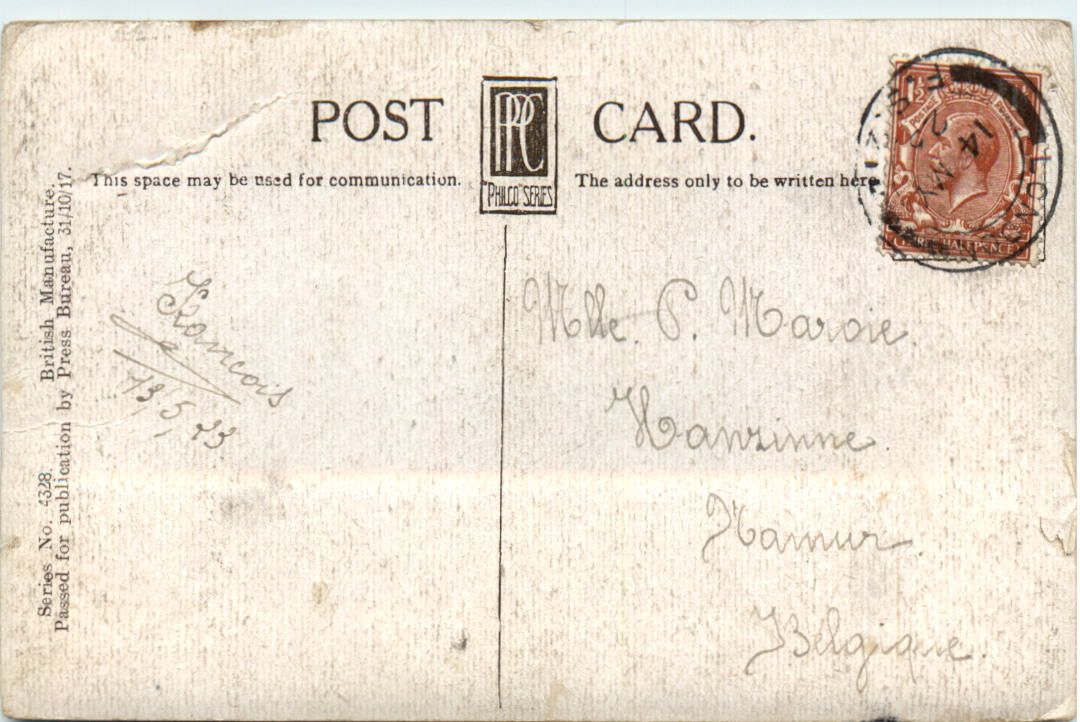 POST CARD.
PPC
"PHILCO" SERIES
This space may be used for communication.
The address only to be written here
Series No. 4328. British Manufacture.
Passed for publication by Press Bureau, 31/10/17.
François
13,5,23
Mlle. P. Maroie.
Hanzinne.
Namur.
Belgique.
1½
POSTAGE
14 MY